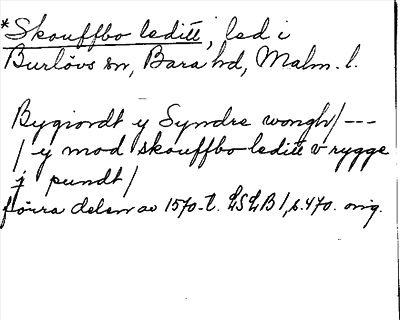 *Skouffbo leditt, led i
Burlövs sn, Bara hd, Malm. l.
Bygiordt y Syndre wongh/---
/ y mod skouffbo leditt v rygge
j pundt/
förra delen av 1570-t. LSLB 1, s. 470. orig.